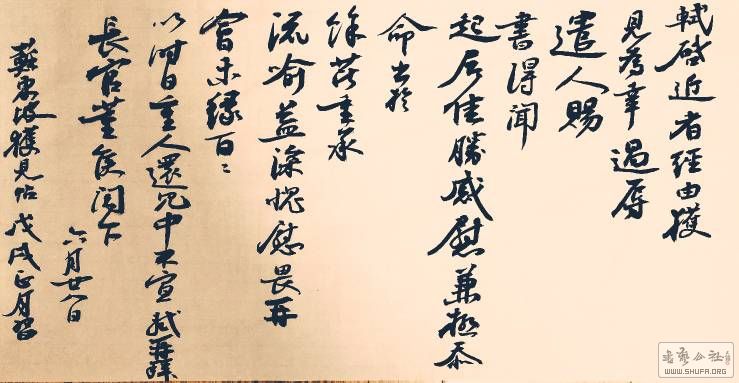 軾啓近者經由獲
見為幸過辱
遣人賜
書得聞
起居佳勝感慰兼極忝
命出於
餘芘重承
流喻益深愧慰畏再
會未緣百〻
以時自重人還冗中不宣軾再拜
長官董侯閣下
六月廿八日
蘇東坡獲見帖戊戌正月習
WWW.SHUFA.ORG